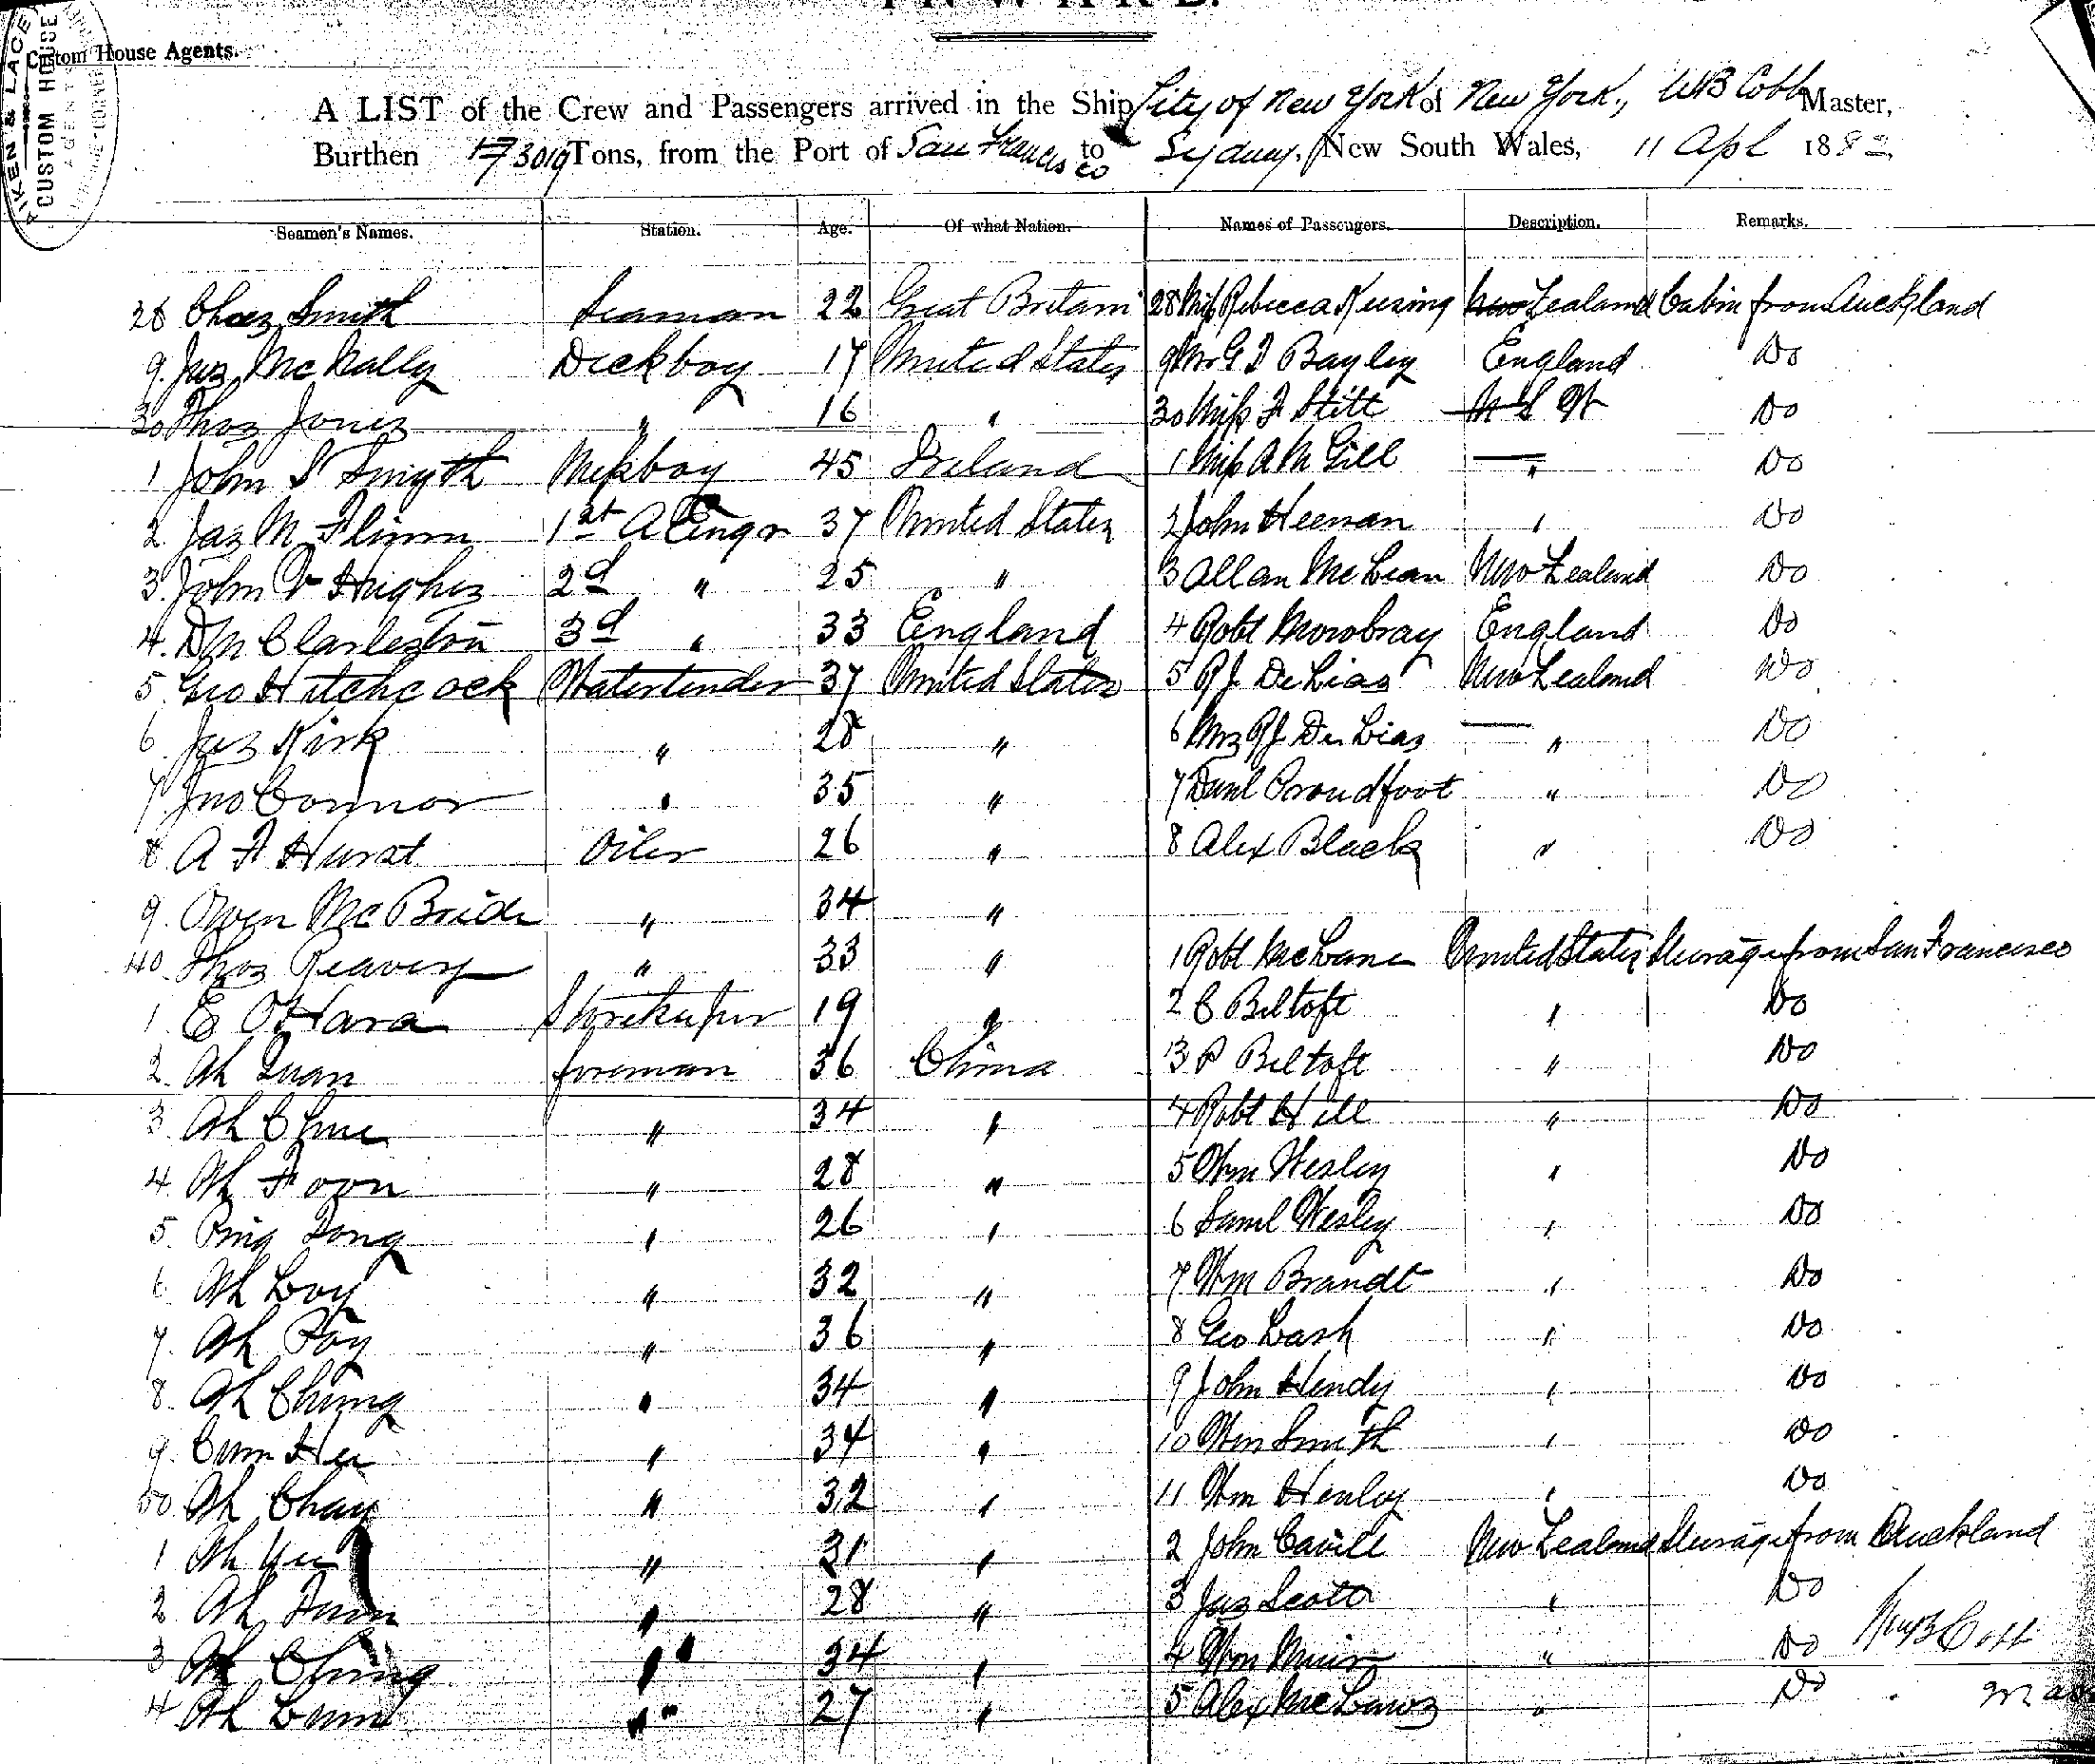 INWARD.
Custom House Agents.
CUSTOM HOUSE
A LIST of the Crew and Passengers arrived in the Ship City of New York of New York, WB Cobb Master,
Burthen 3019 Tons, from the Port of San Francisco to Sydney, New South Wales, 11 Apl 1882
Seamen's Names. Station. Age. Of what Nation. Names of Passengers. Description. Remarks.
28 Chas Smith Seaman 22 Great Britain 28 Miss Rebecca Keesing New Zealand Cabin from Auckland
9. Jas McNally Deckboy 17 United States 9 Mr G I Bayley England Do
30 Thos Jones " 16 " 30 Miss F Stitt N S W Do
1 John S Smyth Messboy 45 Ireland 1 Miss A M Gill " Do
2. Jas M Flinn 1st A Engr 37 United States 2 John Heenan " Do
3. John V Hughes 2d " 25 " 3 Allan McLean New Zealand Do
4. D M Charleston 3d " 33 England 4 Robt Mowbray England Do
5. Geo Hitchcock Watertender 37 United States 5 R J De Lias New Zealand Do
6 Jas Kirk " 28 " 6 Mrs R J De Lias " Do
7 Jno Connor " 35 " 7 Danl Proudfoot " Do
8 A F Hurst Oiler 26 " 8 Alex Black " Do
9. Owen McBride " 34 "
40. Thos Reavey " 33 " 1 Robt McLane United States Steerage from San Francisco
1. E O'Hara Storekeeper 19 " 2 C Beltoft " Do
2. Ah Quan foreman 36 China 3 P Beltoft " Do
3. Ah Chue " 34 " 4 Robt Hill " Do
4. Ah Foon " 28 " 5 Wm Wesley " Do
5. Ping Tong " 26 " 6 Saml Wesley " Do
6 Ah Loy " 32 " 7 Wm Brandt " Do
7. Ah Poy " 36 " 8 Geo Lash " Do
8. Ah Chung " 34 " 9 John Hendy " Do
9. Cum Hee " 34 " 10 Wm Smith " Do
50 Ah Chay " 32 " 11 Wm Henley " Do
1 Ah Yee " 31 " 2 John Cavill New Zealand Steerage from Auckland
2 Ah " 28 " 3 Jas Scott " Do
3 Ah Ching " 34 " 4 Wm Muir " Do
4 Ah " 27 " 5 Alex McLaws " Do